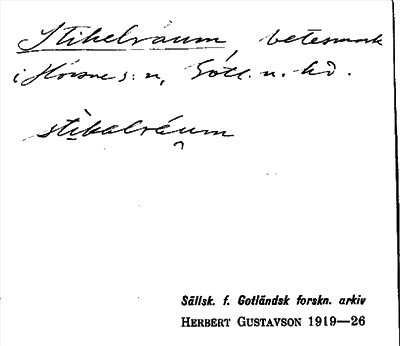 Stikelraum, betesmark
i Horsne s:n, Gotl. n. hd.
stikalráum
Sällsk. f. Gotländsk forskn. arkiv
HERBERT GUSTAVSON 1919—26